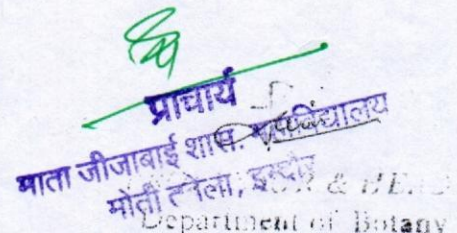 प्राचार्य
माता जीजाबाई शास. महाविद्यालय
मोती तबेला, इन्दौर
& HEAD
Department of Botany